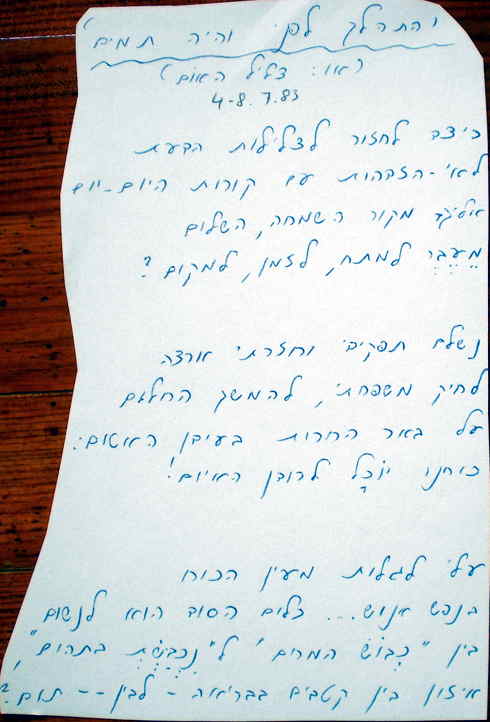 והתהלך לפני והיה תמים
(ראו: צליל האום)
4-8.7.83
כיצד לחזור לצלילות הדעת
לאי-הזדהות עם קורות היום-יום
מקור השמחה, השלום
מֵעֵבֶר למתח, לזמן, למקום?
נשלם תפקידי וחזרתי ארצה
לחיק משפחתי, להמשך החלום
על באר החרות בעידן האטום:
כוחנו יוּכַל לחורבן האיום!
עלי לגלות מעין הכוח
בנפש אנוש... כלום הסוד הוא לנשום
בין "כָּבוֹשׁ המרום" ל"נִכְבֶּשֶׁת בתהום",
איזון בין קטבים בבריאה - לבין -- תום?